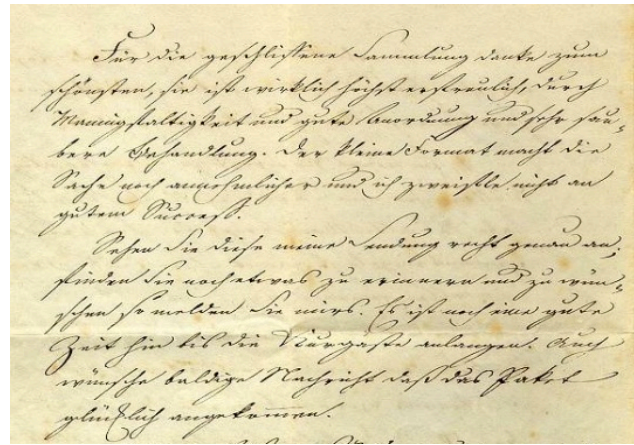 Für die geschlissene Sammlung danke zum
schönsten, sie ist wirklich höchst erfreulich, durch
Mannigfaltigkeit und gute Anordnung und sehr sau-
bere Behandlung. Der kleine Format macht die
Sache noch annehmlicher und ich zweifle nicht an
gutem Success.
Sehen Sie diese meine Sendung recht genau an;
finden Sie noch etwas zu erinnern und zu wün-
schen so melden Sie mirs. Es ist noch eine gute
Zeit hin bis die Kurgäste anlangen. Auch
wünsche baldige Nachricht daß das Paket
glücklich angekommen.